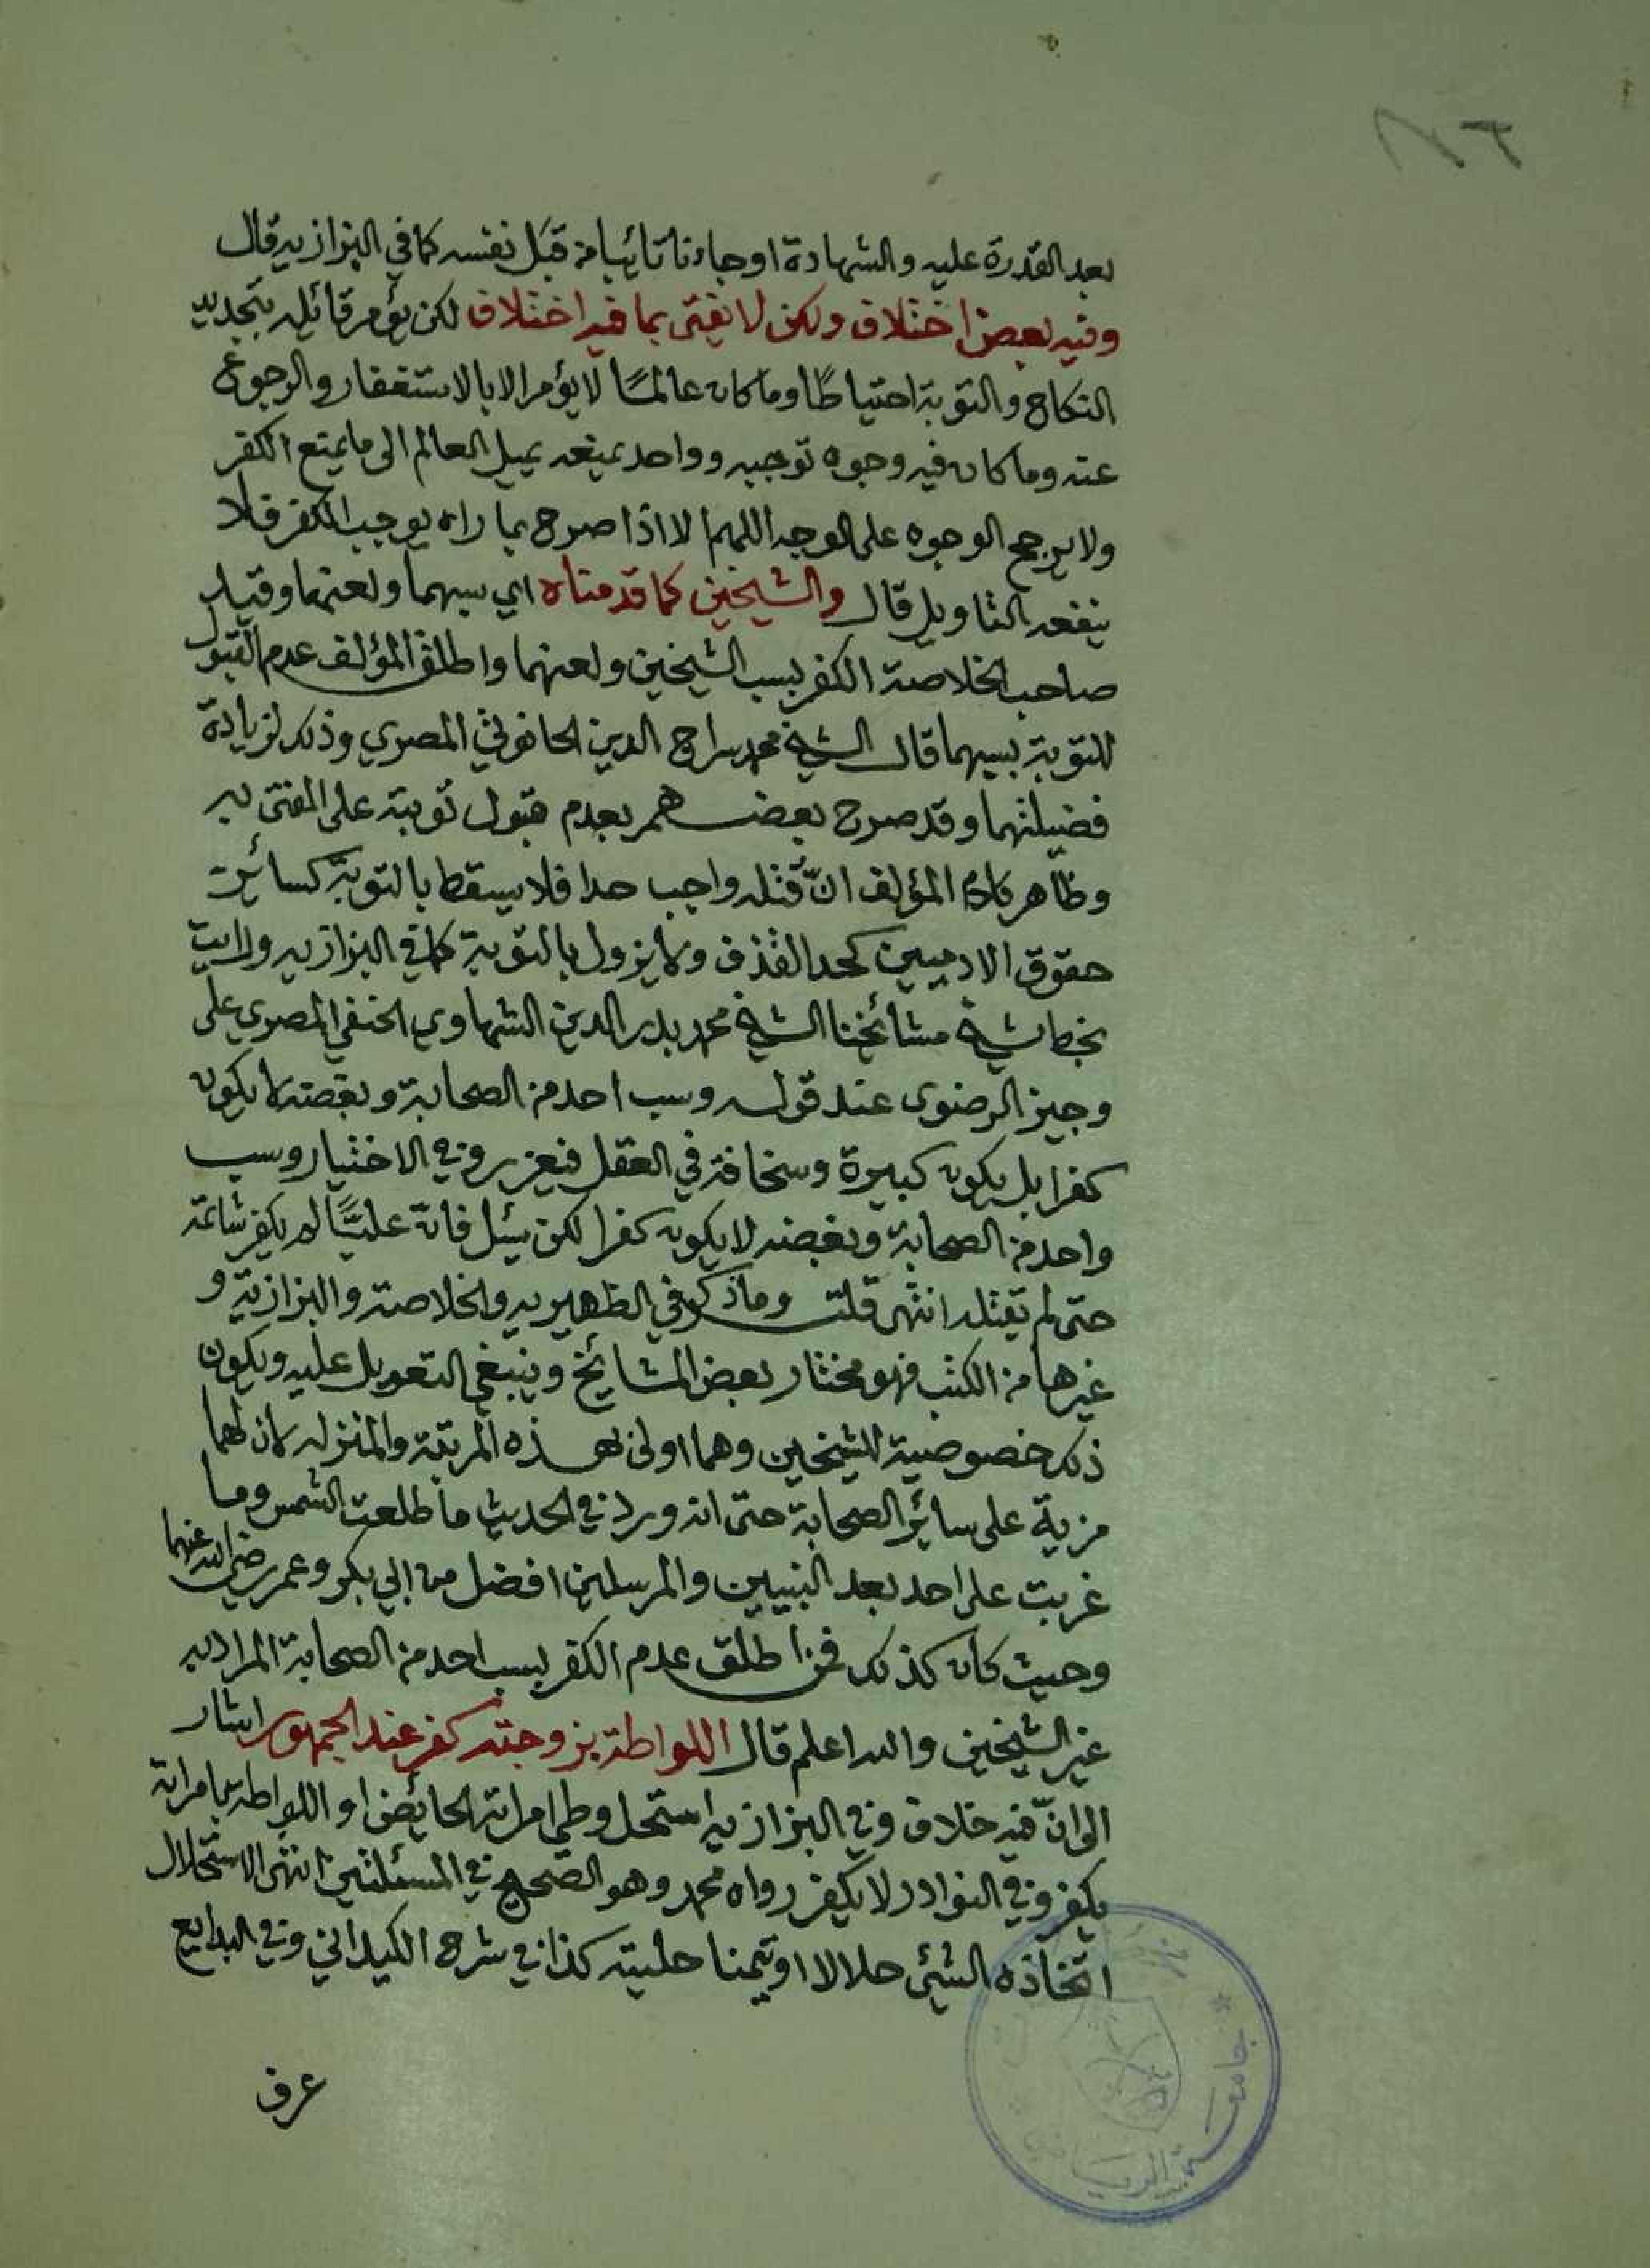 بعد القدرة عليه والشهادة او جاءنا تائبا من قبل نفسه كما في البزازيه قال
وفيه بعض اختلاف ولكن لا يفتى بما فيه اختلاف لكن يؤمر قائله بتجديد
النكاح والتوبة احتياطًا وما كان عالمًا لا يؤمر الا بالاستغفار والرجوع
عنه وما كان فيه وجوه توجبه وواحد يمنعه يميل العالم الى ما يمنع الكفر
ولا يرجح الوجوه على الوجه اللهم الا اذا صرح بما راه يوجب الكفر فلا
ينفعه التاويل قال والشيخين كما قدمناه اي سبهما ولعنهما وقيد
صاحب الخلاصة الكفر بسب الشيخين ولعنهما واطلق المؤلف عدم القبول
للتوبة بسبهما قال الشيخ محمد سراج الدين الحانوتي المصري وذلك لزيادة
فضيلتهما وقد صرح بعضهم بعدم قبول توبته على المفتى به
وظاهر كلام المؤلف انّ قتله واجب حدا فلا يسقط بالتوبة كسائر
حقوق الادميين كحد القذف ولا يزول بالتوبة كما في البزازيه ورايت
بخط شيخ مشائخنا الشيخ محمد بدر الدين الشهاوي الحنفي المصري على
وجيز الرضوى عند قوله وسب احد من الصحابة وبغضه لا يكون
كفرا بل يكون كبيرة وسخافة في العقل فيعزر وفي الاختيار وسب
واحد من الصحابة وبغضه لا يكون كفرا لكن يضلل فانّ عليًّا لم يكفر شاتمه
حتى لم يقتله انتهى قلت وما ذكر في الظهيريه والخلاصة والبزازية و
غيرها من الكتب فهو مختار بعض المشائخ وينبغي التعويل عليه ويكون
ذلك خصوصية للشيخين وهما اولى بهذه المرتبة والمنزله لان لهما
مزية على سائر الصحابة حتى انه ورد في الحديث ما طلعت الشمس وما
غربت على احد بعد النبيين والمرسلين افضل من ابي بكر وعمر رضي الله عنهما
وحيث كان كذلك فمن اطلق عدم الكفر بسب احد من الصحابة المراد به
غير الشيخين والله اعلم قال اللواطة بزوجته كفر عند الجمهور اشار
الى انّ فيه خلاف وفي البزازيه استحل وطى امراته الحائض او اللواطة بامراته
يكفر وفي النوادر لا يكفر رواه محمد وهو الصحيح في المسئلتين انتهى الاستحلال
اتخاذه الشئ حلالا او تمنا حليته كذا في شرح الكيداني وفي البدايع
عرف
جامعة الرياض